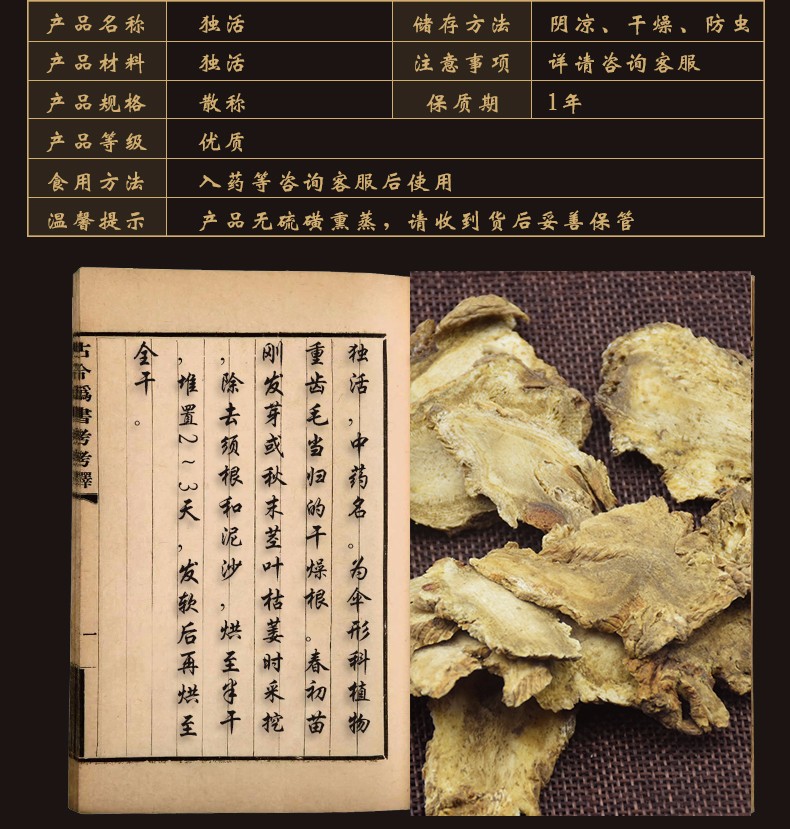 产品名称 独活 储存方法 阴凉、干燥、防虫
产品材料 独活 注意事项 详请咨询客服
产品规格 散称 保质期 1年
产品等级 优质
食用方法 入药等咨询客服后使用
温馨提示 产品无硫磺熏蒸，请收到货后妥善保管
独活，中药名。为伞形科植物
重齿毛当归的干燥根。春初苗
刚发芽或秋末茎叶枯萎时采挖
，除去须根和泥沙，烘至半干
，堆置2~3天，发软后再烘至
全干。
書考考釋
一